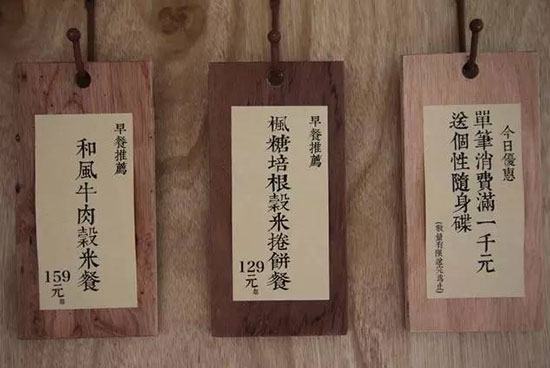 早餐推薦
和風牛肉穀米餐
159元起
早餐推薦
楓糖培根穀米捲餅餐
129元起
今日優惠
單筆消費滿一千元
送個性隨身碟
(數量有限送完為止)